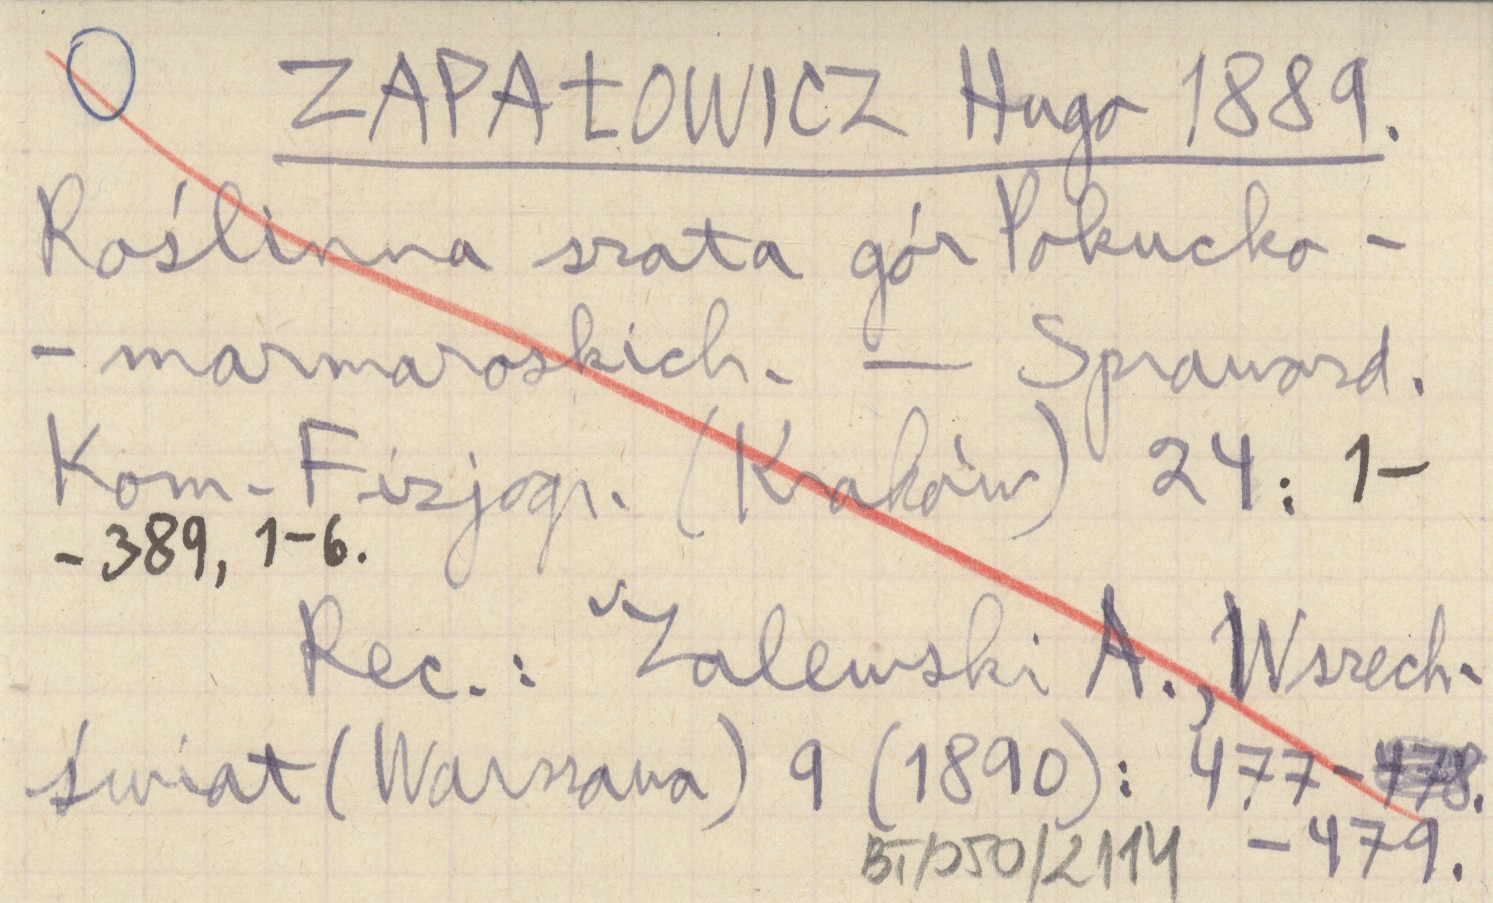 ZAPAŁOWICZ Hugo 1889.
Roślinna szata gór Pokucko-
-marmaroskich. — Sprawozd.
Kom. Fizjogr. (Kraków) 24: 1-
-389, 1-6.
Rec.: Zalewski A., Wszech-
świat (Warszawa) 9 (1890): 477-478.
-479.
/2114